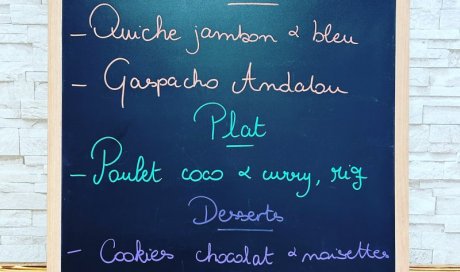 - Quiche jambon & bleu
- Gaspacho Andalou
Plat
- Poulet coco & curry, riz
Desserts
- Cookies chocolat & noisettes